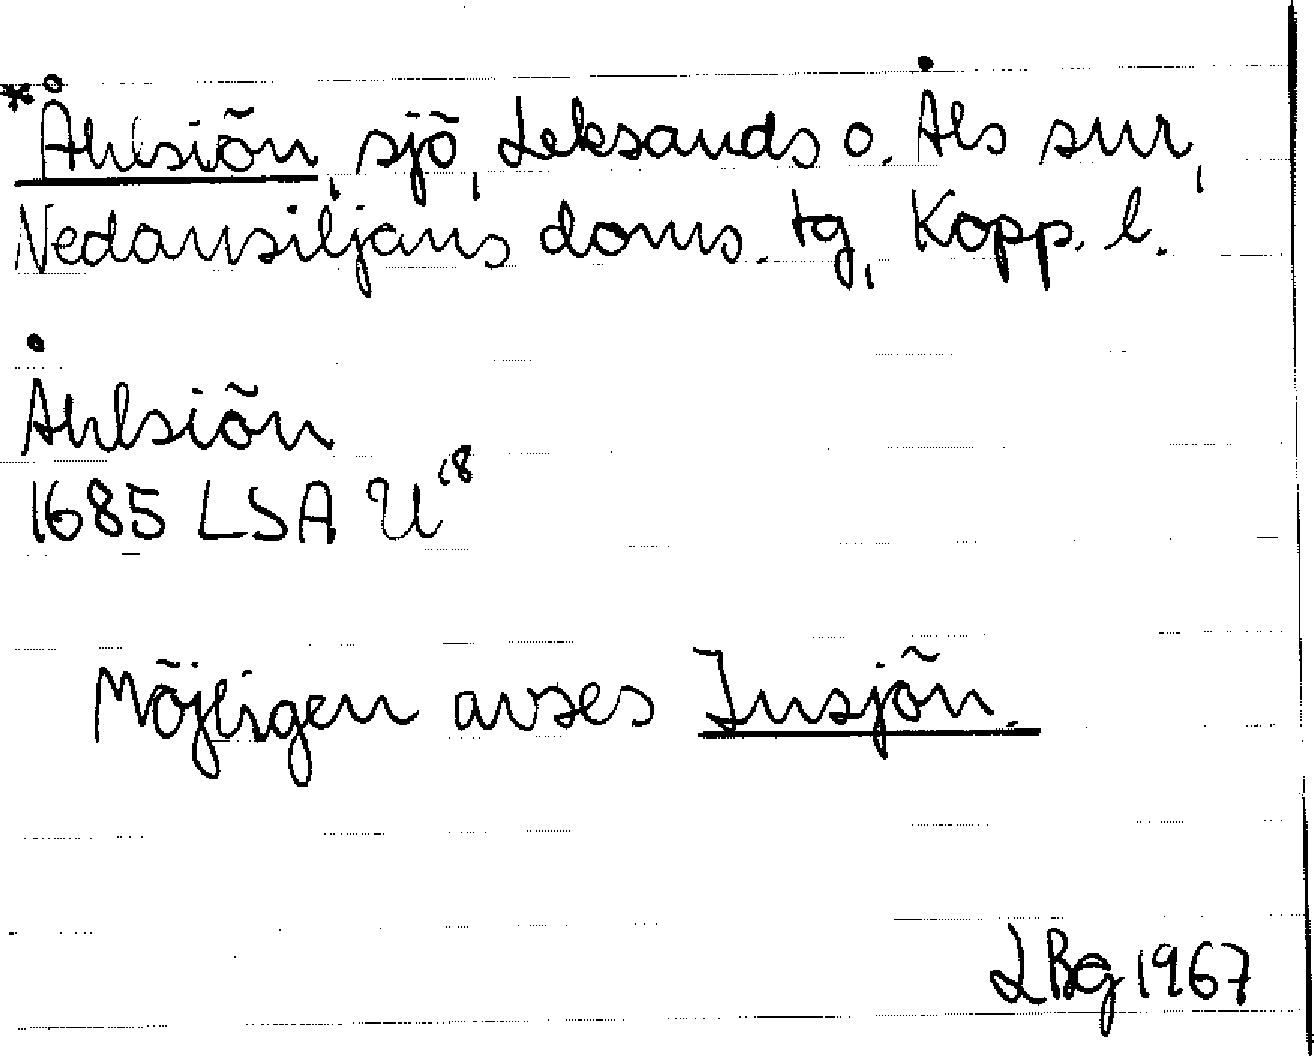 *Åhlsiön, sjö, Leksands o. Åls snr,
Nedansiljans doms. tg, Kopp. l.
Åhlsiön
1685 LSA U18
Möjligen avses Insjön.
LBg 1967